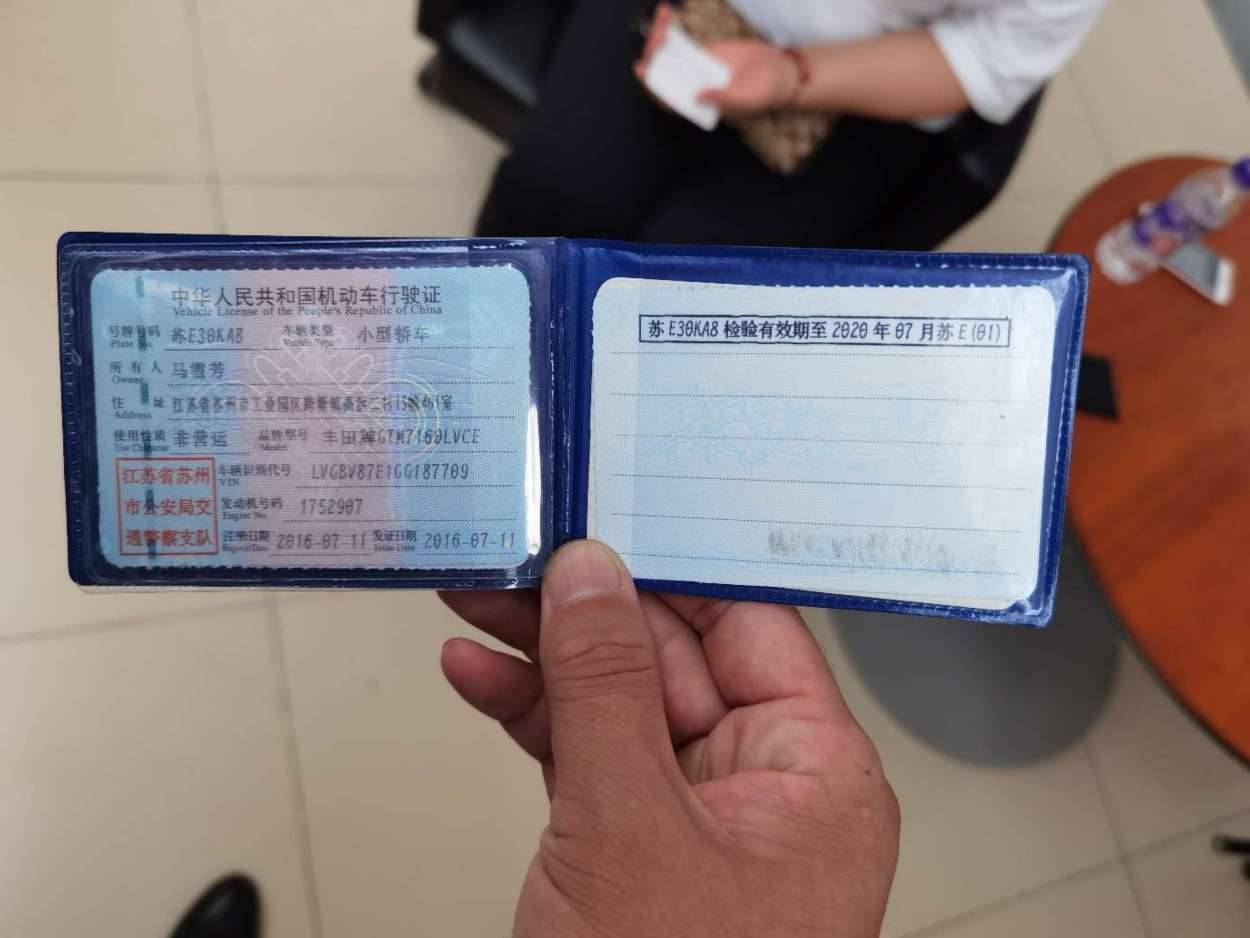 中华人民共和国机动车行驶证
Vehicle License of the People's Republic of China
号牌号码 苏E30KA8 车辆类型 小型轿车
Plate No. Vehicle Type
所有人 马雪芳
Owner
住址 江苏省苏州市工业园区
Address
使用性质 非营运 品牌型号 丰田牌GTM7160LVCE
Use Character Model
江苏省苏州 车辆识别代号 LVGBV87E1GG187709
VIN
市公安局交 发动机号码 1752907
Engine No.
通警察支队 注册日期 2016-07-11 发证日期 2016-07-11
Register Date Issue Date
苏E30KA8 检验有效期至 2020 年 07 月苏 E(01)